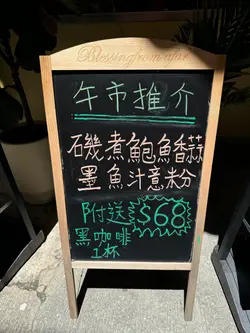 Blessing from afar
午市推介
磯煮鮑魚香蒜
墨魚汁意粉
附送 $68
黑咖啡
1杯